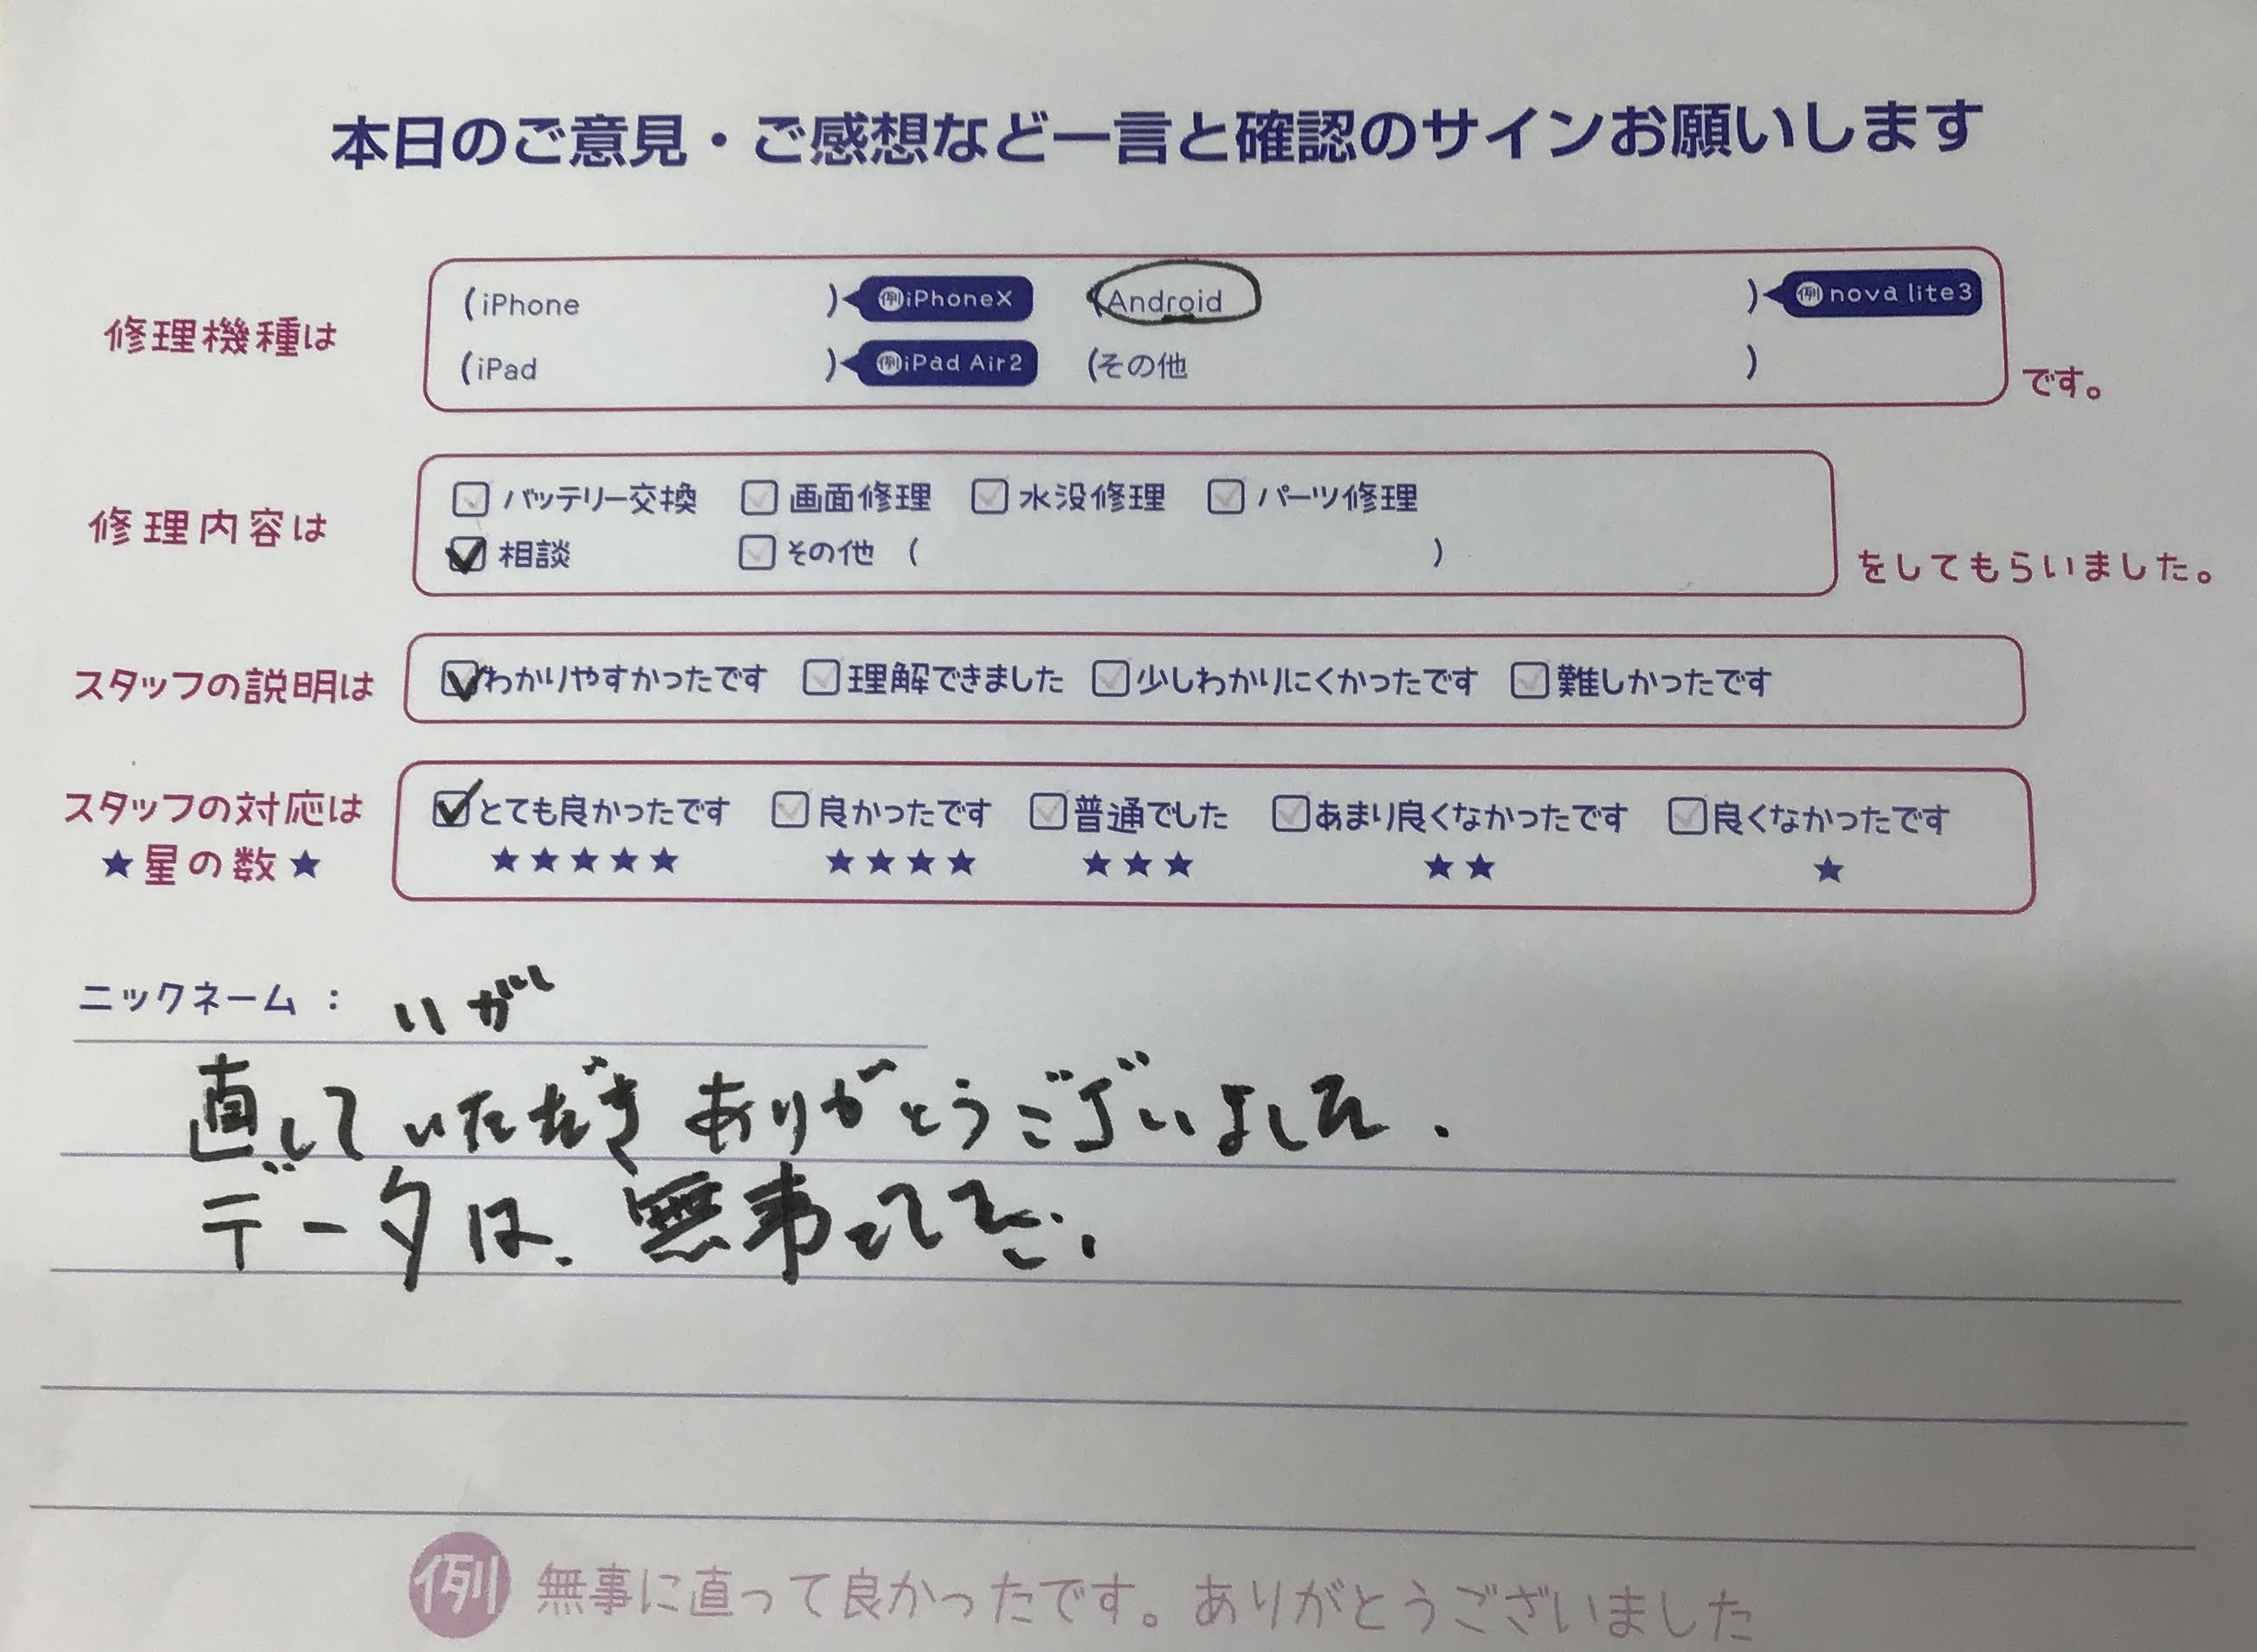 本日のご意見・ご感想など一言と確認のサインお願いします
修理機種は (iPhone ) 例iPhoneX (Android ) 例nova lite3
(iPad ) 例iPad Air2 (その他 ) です。
修理内容は バッテリー交換 画面修理 水没修理 パーツ修理
相談 その他 ( ) をしてもらいました。
スタッフの説明は わかりやすかったです 理解できました 少しわかりにくかったです 難しかったです
スタッフの対応は とても良かったです 良かったです 普通でした あまり良くなかったです 良くなかったです
★星の数★ ★★★★★ ★★★★ ★★★ ★★ ★
ニックネーム : いが
直していただきありがとうございました.
データは、無事
例 無事に直って良かったです。ありがとうございました